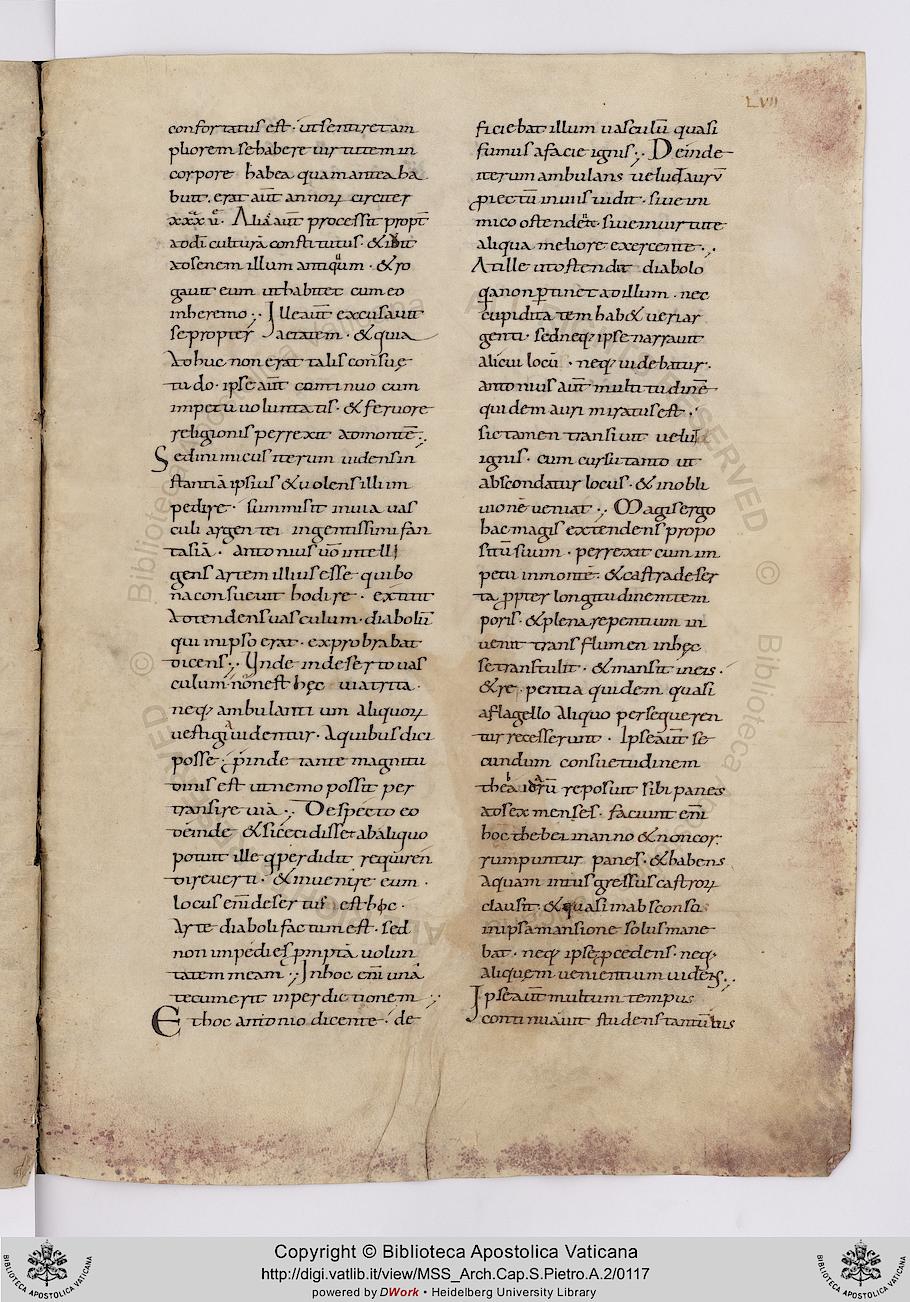 LVII
confortatus est · ut sentiret am
pliorem se habere uirtutem in
corpore habea quam antea ha
buit · erat aut̄ annoꝝ circiter
xxx u · Alia aut̄ processit propt̄
ad dī culturā constitutus · & ibit
ad senem illum antiquum · & ro
gauit eum ut habitet cum eo
in heremo ·, Ille aut̄ excusauit
se propter aetatem · & quia
adhuc non erat talis consue
tudo · ipse aut̄ continuo cum
impetu uoluntatis · & feruore
religionis perrexit ad montē ·,
Sed inimicus iterum uidens in
stantiā ipsius & uolens illi im
pedire · summisit in uia uas
culi argentei ingentissimi fan
tasiā · antonius uō intelli
gens artem illius esse qui bo
na consueuit hodire · extitit
adtendens uasculum · diabolū
qui in ipso erat · exprobrabat
dicens ·, Unde in deserto uas
culum · non est hęc uia trita ·
neq; ambulantium aliquoꝝ
uestigia uidentur · A quibus dici
posse · ꝓinde tante magnitu
dinis est ut nemo possit per
transire uiā ·, Despecto eo
deinde & si cecidisset ab aliquo
potuit ille q perdidit requiren
di reuerti · & inuenire eum ·
locus enī desertus est hęc ·
Arte diaboli factum est · sed
non impedies ꝓmptā uolun
tatem meam ·, In hoc enī unā
tecum erit in perdictionem ·,
Et hoc antonio dicente · de
ficiebat illum uasculū quasi
fumus a facie ignis ·, Deinde
iterum ambulans uelud aurū
ꝓiectū in uiis uidit · siue in
mico ostendente · siue in uirtute
aliqua meliore exercente ·,
At ille ut ostendit diabolo
qa non ꝑtinet ad illum · nec
cupiditatem hab& ueri ar
genti · sed neq; ipse narrauit
alicui locū · neq; uidebatur ·
antonius aut̄ multitudinē
quidem auri miratus est ·
sic tamen transiuit uelud
ignis · cum cursu tanto ut
abscondatur locus · & in obli
uionē ueniat ·, Magis ergo
hac magis extendens propo
situ suum · perrexit cum im
petu in montē · & castra deser
ta ꝓpter longitudinem tem
poris · & plena repentium in
uenit trans flumen in hęc
se transtulit · & mansit in eis ·
& re pentia quidem quasi
a flagello aliquo persequeren
tur recesserunt · Ipse aut̄ se
cundum consuetudinem
thebaidorū reposuit sibi panes
ad sex menses · faciunt enī
hoc thebei in anno & non cor
rumpuntur panes · & habens
aquam intus gressus castroꝝ
clausit · & quasi in absconso
in ipsa mansione solus mane
bat · neq; ipse ꝓcedens · neq;
aliquem uenientium uidens ·,
Ipse aut̄ multum tempus
continuauit studens tantū bis
Copyright © Biblioteca Apostolica Vaticana
http://digi.vatlib.it/view/MSS_Arch.Cap.S.Pietro.A.2/0117
powered by DWork • Heidelberg University Library
BIBLIOTECA APOSTOLICA VATICANA
BIBLIOTECA APOSTOLICA VATICANA